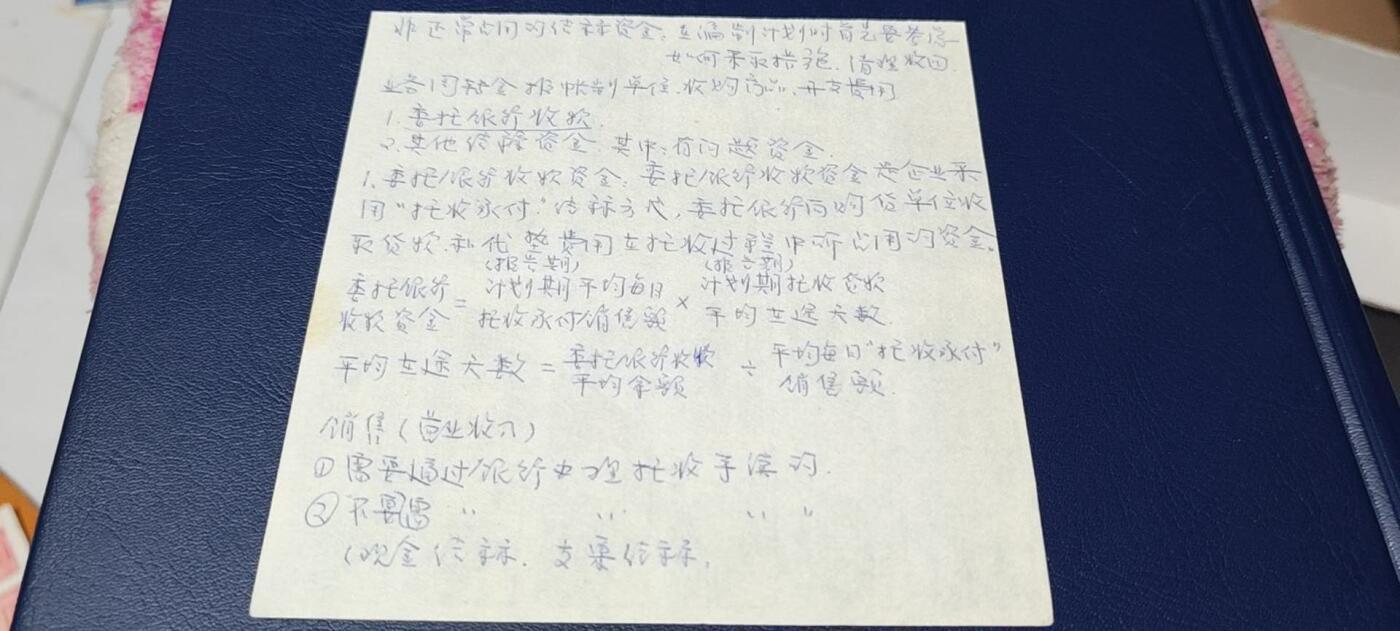 非正常占用的结算资金:在编制计划时首先要考虑
如何采取措施,清理收回.
业务周转金 报帐制单位.收购商品.开支费用
1.委托银行收款.
2.其他结算资金.其中:有问题资金.
1.委托银行收款资金:委托银行收款资金是企业采
用“托收承付”结算方式,委托银行向购货单位收
取货款.和代垫费用在托收过程中所占用的资金。
(报告期) (报告期)
委托银行收款资金 = 计划期平均每日托收承付销售额 × 计划期托收货款平均在途天数.
平均在途天数 = 委托银行收款平均余额 ÷ 平均每日“托收承付”销售额.
销售(营业收入)
①需要通过银行办理托收手续的.
②不需 〃 〃 〃 〃
(现金结算.支票结算.